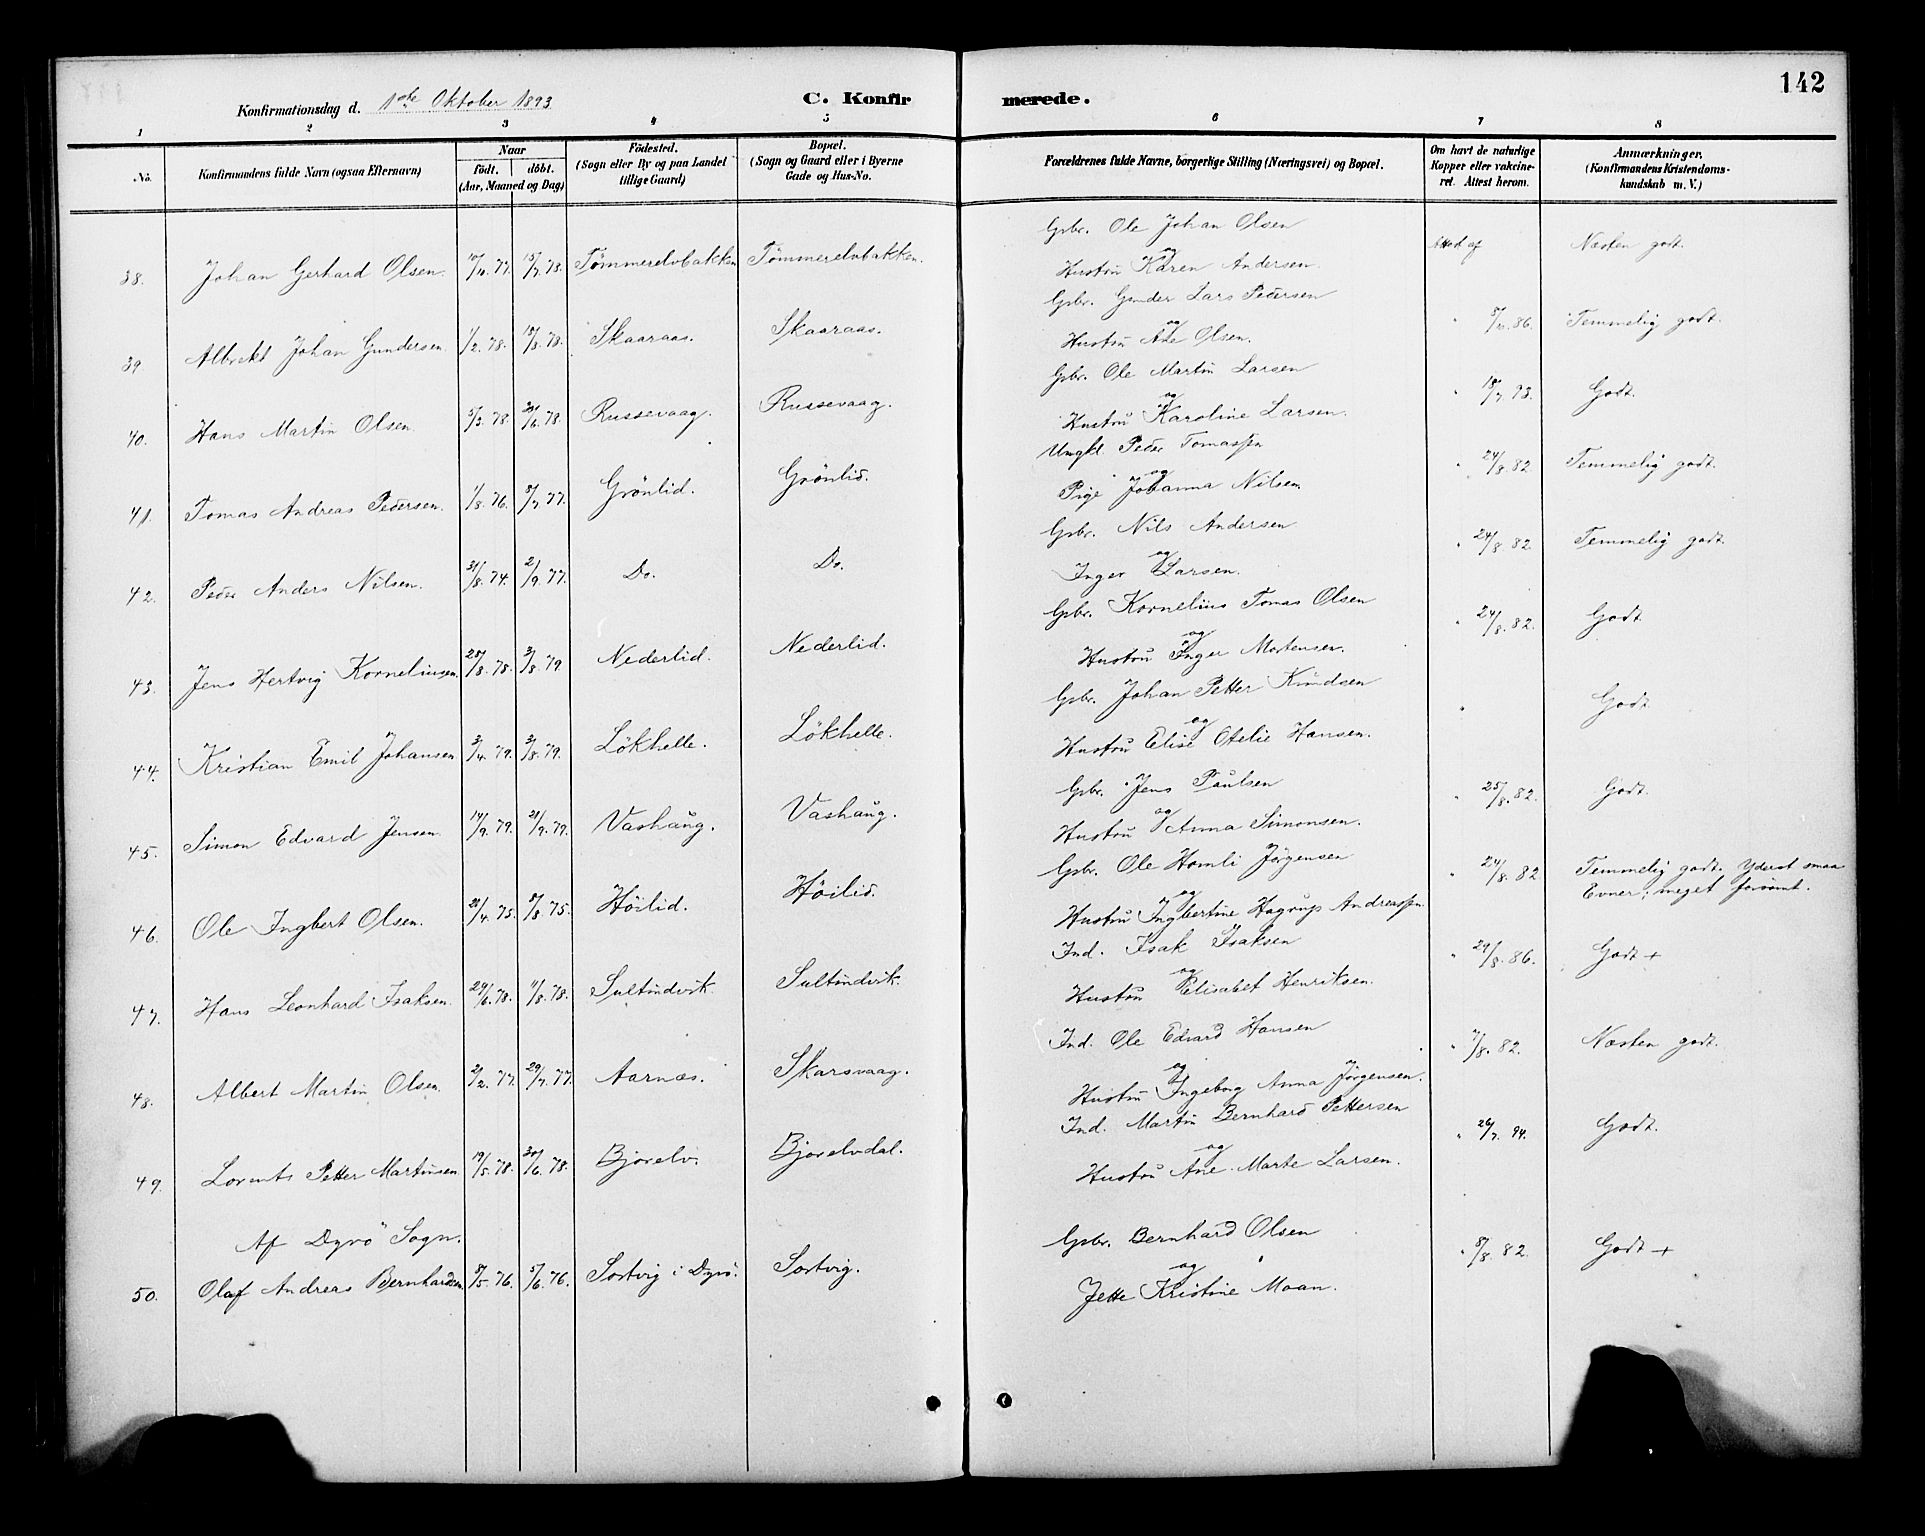 142
Konfirmationsdag d. 1ste Oktober 1893.
C. Konfirmerede.
1 2 3 4 5 6 7 8
No. Konfirmandens fulde Navn (ogsaa Efternavn) Naar født. døbt. (Aar, Maaned og Dag) Födested. (Sogn eller By og paa Landet tillige Gaard) Bopæl. (Sogn og Gaard eller i Byerne Gade og Hus-No. Forældrenes fulde Navne, borgerlige Stilling (Næringsvei) og Bopæl. Om havt de naturlige Kopper eller vakcineret. Attest herom. Anmærkninger. (Konfirmandens Kristendomskundskab m. V.)
38. Johan Gerhard Olsen. 77. 15/7.78. Tømmerelvbakken Tømmerelvbakken. Gbr. Ole Johan Olsen Attest af Næsten godt.
og Hustru Karen Andersen.
39. Albrekt Johan Gundersen 1/2.78. 78. Skaaraas. Skaaraas. Gbr. Gunder Lars Pedersen 86. Temmelig godt.
og Hustru Ane Olsen.
40. Hans Martin Olsen 5/3.78. 30/6.78. Russevaag. Russevaag. Gbr. Ole Martin Larsen " 18/7.93. Godt.
og Hustru Karoline Larsen.
41. Tomas Andreas Pedersen. 1/8.76. 8/7.77. Grönlid. Grönlid. Ungkl. Peder Tomassen " 24/8.82 Temmelig godt.
og Pige Johanna Nilsen.
42. Peder Anders Nilsen. 31/8.74. 2/9.77. Do. Do. Gbr. Nils Andersen " 24/8.82. Temmelig godt.
og Inger Larsen.
43. Jens Hertvig Korneliusen 28/8.78. 3/8.79 Nederlid. Nederlid. Gbr. Kornelius Tomas Olsen " 24/8.82. Godt
og Hustru Inger Mortensen.
44. Kristian Emil Johansen 3/4.79. 3/8.79. Lökhelle. Lökhelle. Gbr. Johan Petter Knudsen " Godt
og Hustru Elise Otelie Hansen.
45. Simon Edvard Jensen. 14/9.79. 21/9.79. Vashaug. Vashaug. Gbr. Jens Paulsen " 25/8.82. Godt.
og Hustru Anna Simonsen.
46. Ole Ingbert Olsen. 28/4.75. 8/8.75. Höilid. Höilid. Gbr. Ole Homli Jørgensen " 24/8.82 Temmelig godt. Yderst smaa
Evner; meget forsømt.
og Hustru Ingbertine Hagrup Andreassen
47. Hans Leonhard Isaksen. 29/6.78. 11/8.78. Sultindvik Sultindvik. Ind. Isak Isaksen " 29/8.86. Godt +
og Hustru Elisabet Henriksen.
48. Albert Martin Olsen. 2/2.77. 29/7.77. Aarnæs. Skarsvaag. Ind. Ole Edvard Hansen " 7/8.82. Næsten godt.
og Hustru Ingeborg Anna Jørgensen.
49. Lorents Petter Martinsen 19/5.78. 30/6.78. Bjorelv. Bjorelvdal. Ind. Martin Bernhard Pettersen " 26/7.94. Godt.
og Hustru Ane Marte Larsen.
Af Dyrö Sogn.
50. Olaf Andreas Bernhardsen 8/5.76. 5/6.76. Sortvig i Dyrö. Sortvig. Gbr. Bernhard Olsen " 8/8.82. Godt +
og Jette Kristine Moan.